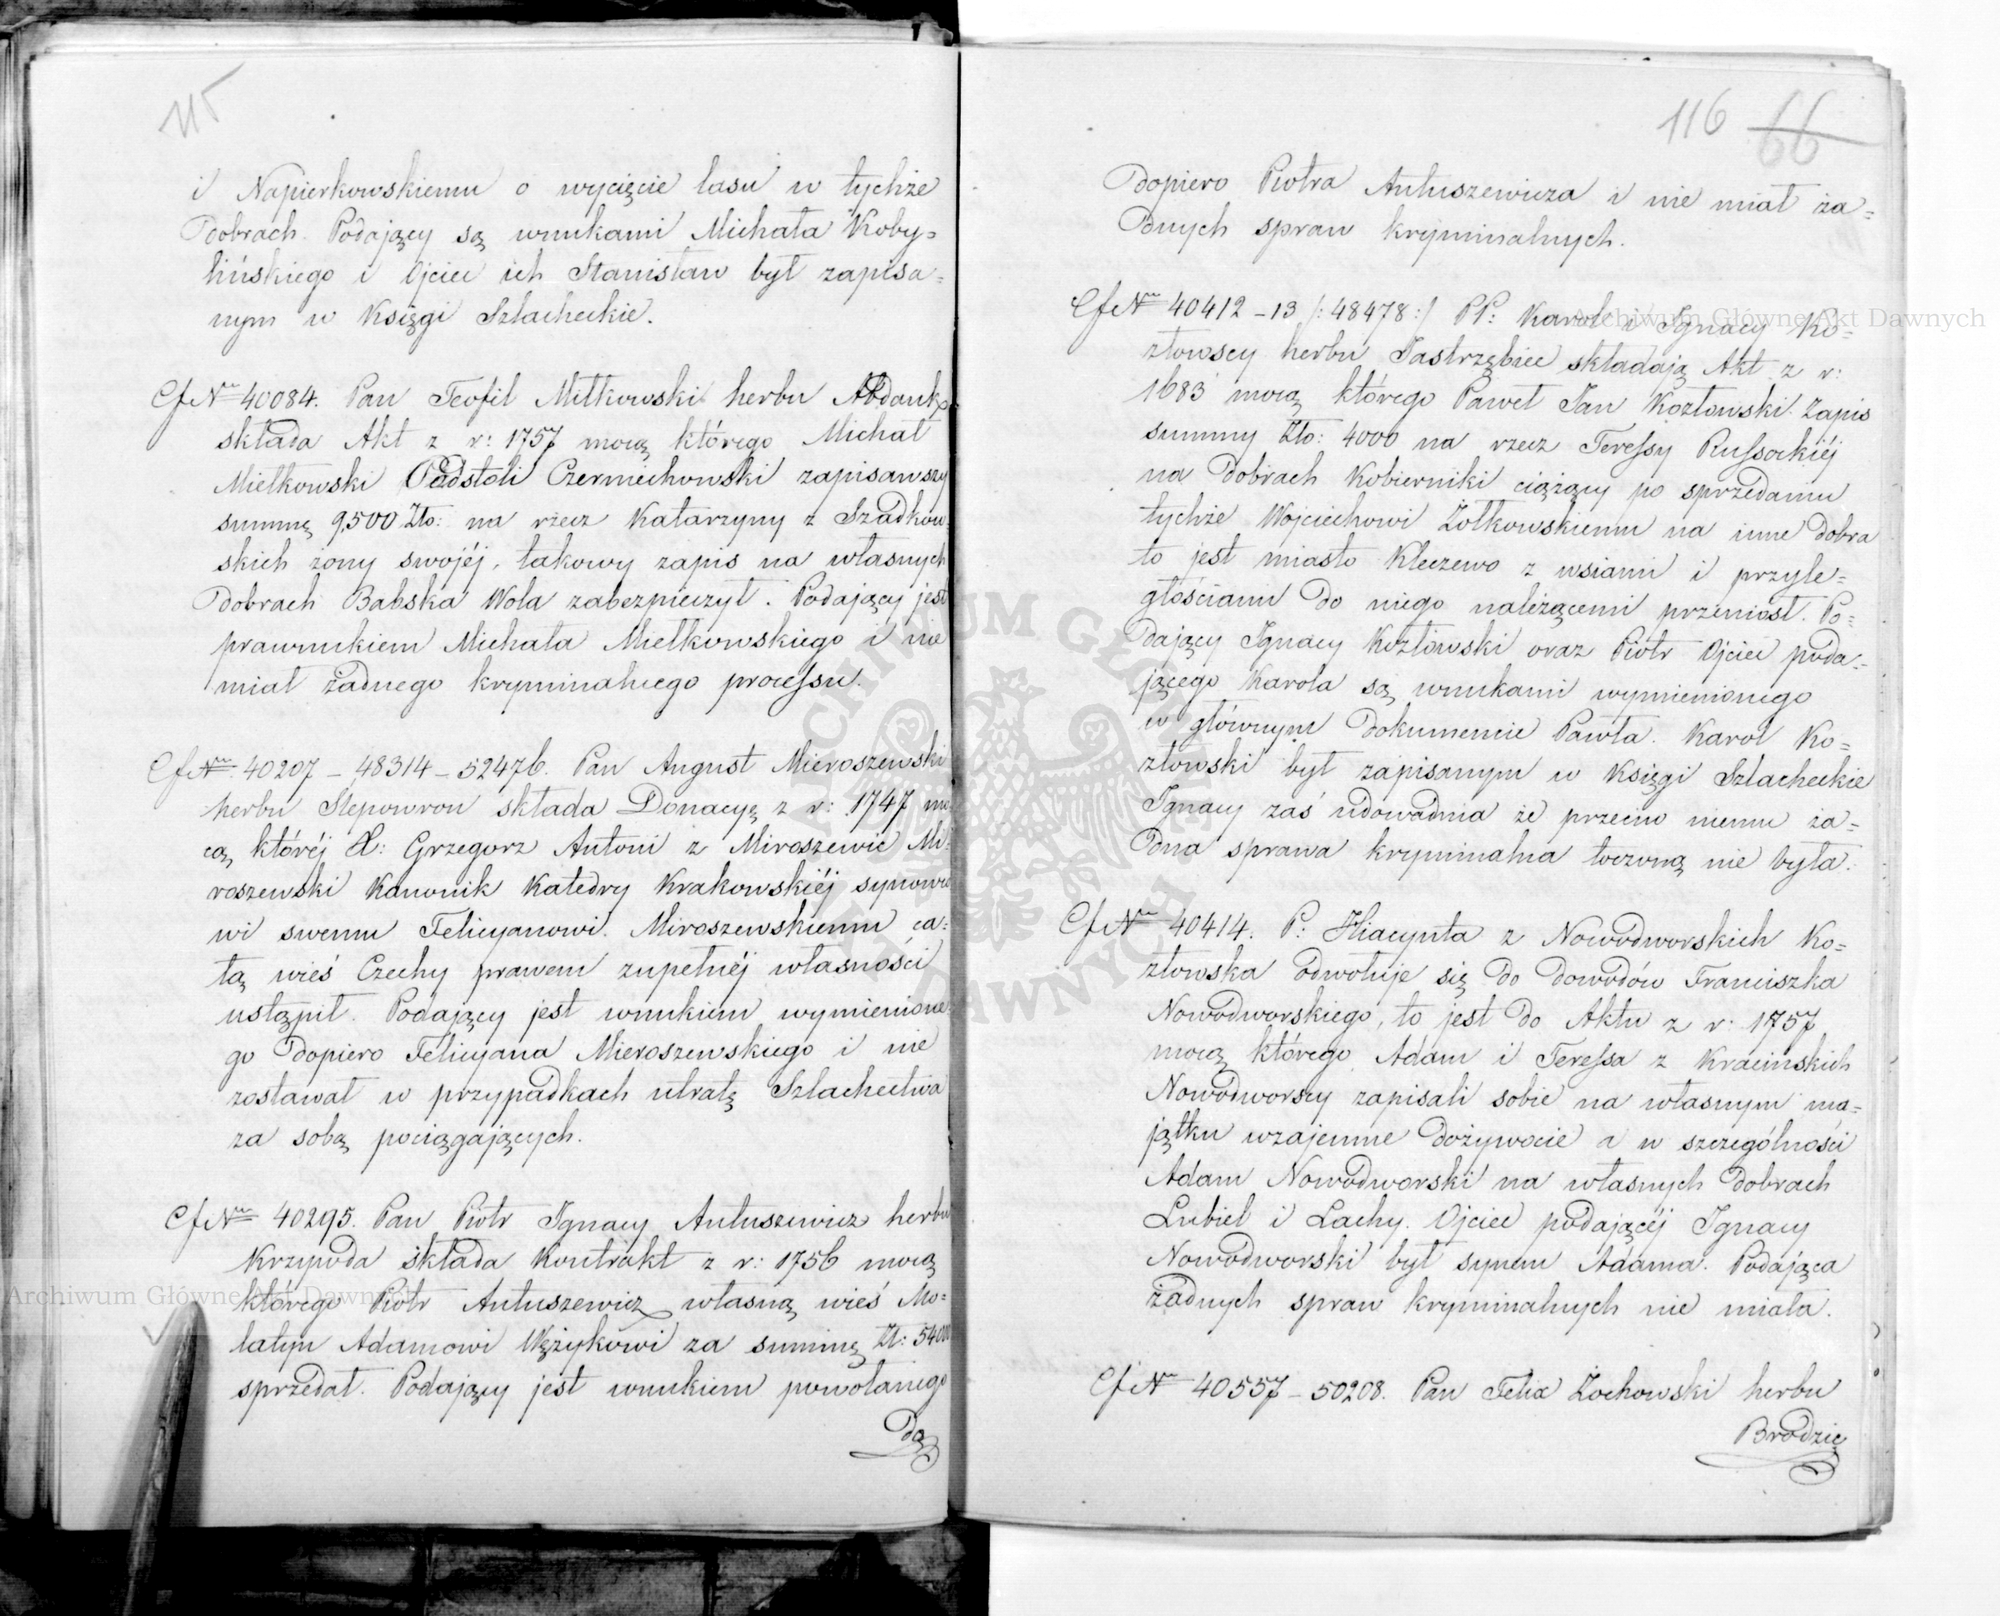 115
i Napierkowskiemu o wycięcie lasu w tychże
Dobrach. Podający są wnukami Michała Koby=
lińskiego i Ojciec ich Stanisław był zapisa=
nym w Księgi Szlacheckie.
Cf Nr 40084. Pan Teofil Miłkowski herbu Abdank
składa Akt z r: 1757 mocą którego Michał
Miełkowski Podstoli Czerniechowski zapisawszy
summę 9,500 Złt: na rzecz Katarzyny z Szadkow
skich żony swojéj, takowy zapis na własnych
dobrach Babska Wola zabezpieczył. Podający jest
prawnukiem Michała Miełkowskiego i nie
miał żadnego kryminalnego processu.
Cf Nr: 40207 – 48314 – 52476. Pan August Mieroszewski
herbu Slepowron składa Donacyę z r: 1747 mo
cą któréj X: Grzegorz Antoni z Miroszewic Mi
roszewski Kanonik Katedry Krakowskiéj synowco
wi swemu Felicyanowi Miroszewskiemu ca=
łą wieś Czechy prawem zupełnéj własności
ustąpił. Podający jest wnukiem wymienione
go dopiero Felicyana Mieroszewskiego i nie
zostawał w przypadkach utratę Szlachectwa
za sobą pociągających.
Cf Nr 40295. Pan Piotr Ignacy Antuszewicz herbu
Krzywda składa Kontrakt z r: 1756 mocą
którego Piotr Antuszewicz własną wieś Mo=
łatyn Adamowi Wężykowi za summę Zł: 54000
sprzedał. Podający jest wnukiem powołanego
Do
116 66
Dopiero Piotra Antuszewicza i nie miał ża=
dnych spraw kryminalnych.
Cf Nr 40412 – 13 /: 48478 :/ PP: Karol i Ignacy Ko=
złowscy herbu Jastrzębiec składają Akt z r:
1683 mocą którego Paweł Jan Kozłowski Zapis
summy Złt: 4000 na rzecz Teressy Russockiéj
na Dobrach Kobierniki ciążący po sprzedaniu
tychże Wojciechowi Żołkowskiemu na inne Dobra
to jest miasto Kleczewo z wsiami i przyle=
głościami do niego należącemi przeniosł. Po=
dający Ignacy Kozłowski oraz Piotr Ojciec poda=
jącego Karola są wnukami wymienionego
w głównym Dokumencie Pawła. Karol Ko=
złowski był zapisanym w Księgi Szlacheckie
Ignacy zaś udowadnia że przeciw niemu ża=
dna sprawa kryminalna toczoną nie była.
Cf Nr 40414. P: Hiacynta z Nowodworskich Ko=
złowska odwołuje się do dowodów Franciszka
Nowodworskiego, to jest do Aktu z r: 1757
mocą którego Adam i Teressa z Kracińskich
Nowodworscy zapisali sobie na własnym ma=
jątku wzajemne Dożywocie a w szczególności
Adam Nowodworski na własnych Dobrach
Lubiel i Lachy. Ojciec podającéj Ignacy
Nowodworski był synem Adama. Podająca
żadnych spraw kryminalnych nie miała.
Cf Nr 40557 – 50208. Pan Felix Żochowski herbu
Brodzic
Archiwum Główne Akt Dawnych
Archiwum Główne Akt Dawnych
ARCHIWUM GŁÓWNE AKT DAWNYCH